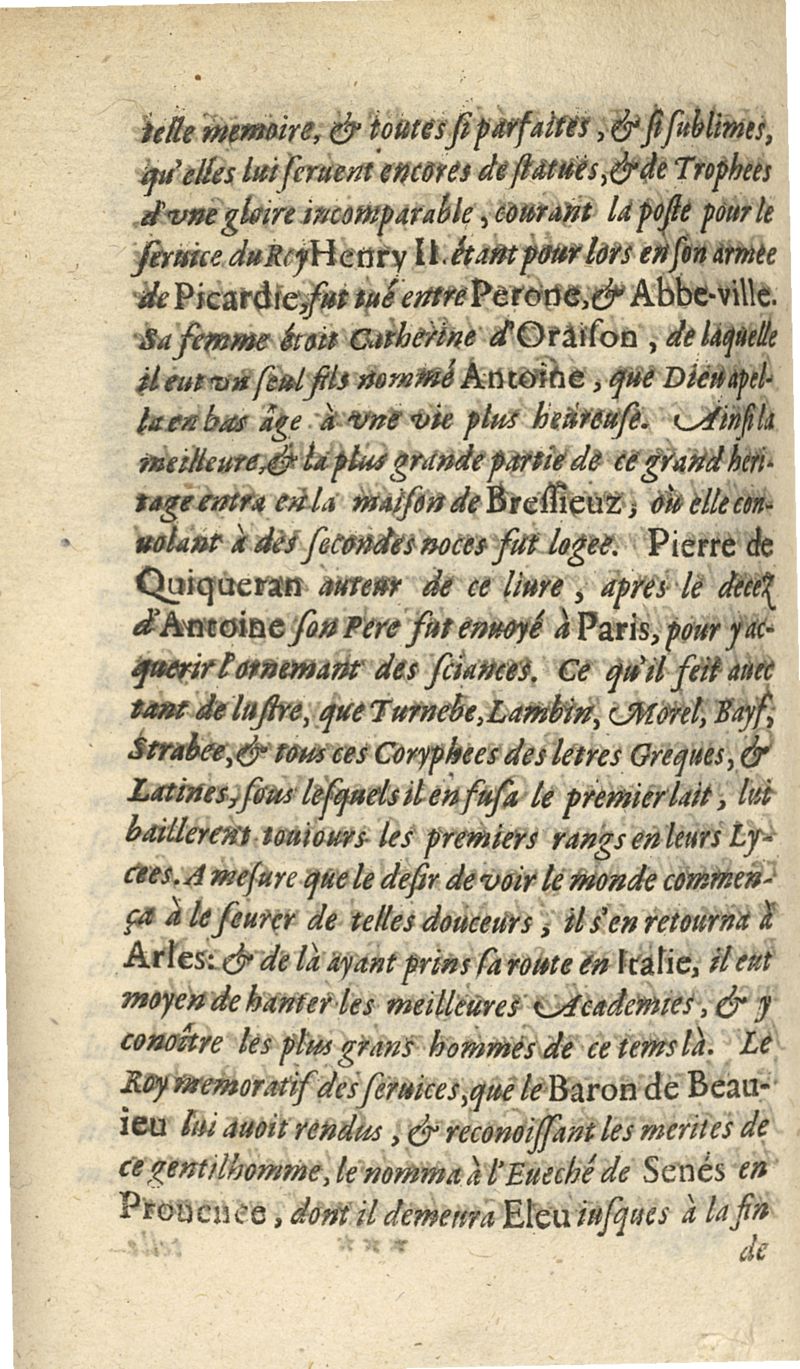 telle memoire, & toutes si parfaites, & si sublimes,
qu'elles lui seruent encores de statues, & de Trophees
d'vne gloire incomparable, courant la poste pour le
seruice du Roy Henry II. étant pour lors en son armee
de Picardie, fut tué entre Perone, & Abbe-ville.
Sa femme étoit Catherine d'Oraison, de laquelle
il eut vn seul fils nommé Antoine, que Dieu apel-
la en bas âge à vne vie plus heureuse. Ainsi la
meilleure, & la plus grande partie de ce grand heri-
tage entra en la maison de Bressieuz, où elle con-
uolant à des secondes noces fut logee. Pierre de
Quiqueran auteur de ce liure, apres le decez
d'Antoine son Pere fut enuoyé à Paris, pour y ac-
querir l'ornemant des sciances. Ce qu'il feit auec
tant de lustre, que Turnebe, Lambin, Morel, Bayf,
Strabee, & tous ces Coryphees des letres Greques, &
Latines, sous lesquels il en fusa le premier lait, lui
baillerent touiours les premiers rangs en leurs Ly-
cees. A mesure que le desir de voir le monde commen-
ça à le seurer de telles douceurs, il s'en retourna à
Arles: & de là ayant prins sa route en Italie, il eut
moyen de hanter les meilleures Academies, & y
conoître les plus grans hommes de ce tems là. Le
Roy memoratif des seruices, que le Baron de Beau-
ieu lui auoit rendus, & reconoissant les merites de
ce gentilhomme, le nomma à l'Eueché de Senés en
Prouence, dont il demeura Eleu iusques à la fin
de